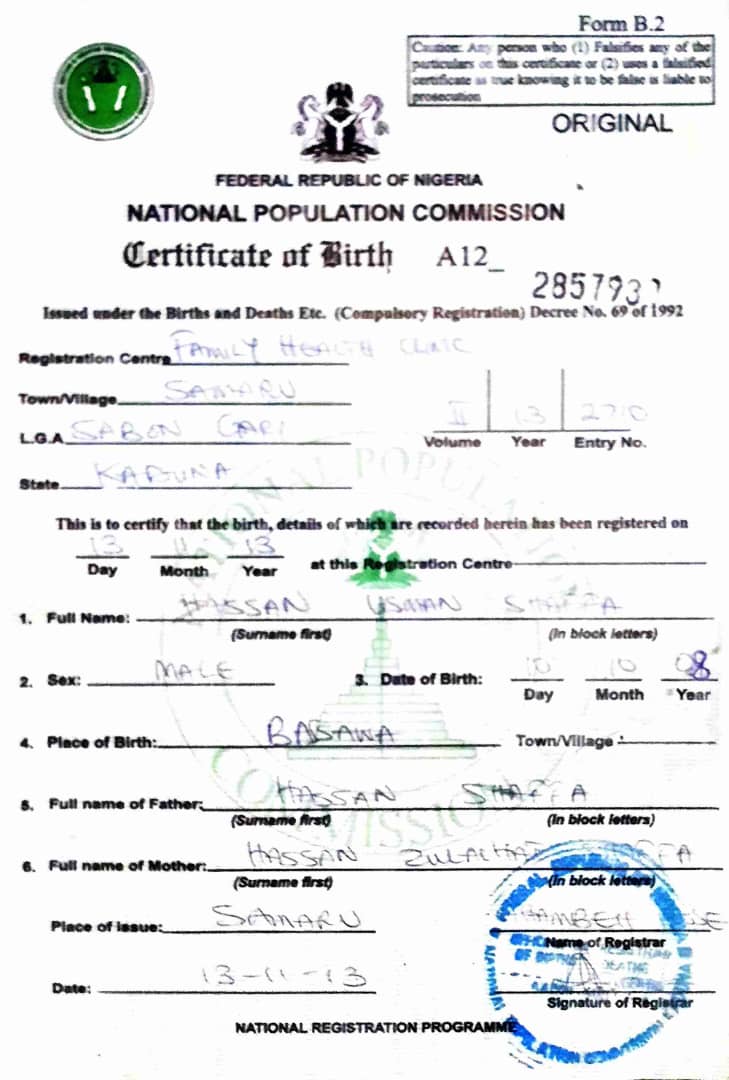 Form B.2
Caution: Any person who (1) Falsifies any of the
particulars on this certificate or (2) uses a falsified
certificate as true knowing it to be false is liable to
prosecution
ORIGINAL
FEDERAL REPUBLIC OF NIGERIA
NATIONAL POPULATION COMMISSION
Certificate of Birth A12_
285793
Issued under the Births and Deaths Etc. (Compulsory Registration) Decree No. 69 of 1992
Registration Centre FAMILY HEALTH CLINIC
Town/Village SAMARU
L.G.A SABON GARI
II 13 2710
Volume Year Entry No.
State KADUNA
This is to certify that the birth, details of which are recorded herein has been registered on
13 11 13
Day Month Year at this Registration Centre
1. Full Name: HASSAN USMAN SHAFFA
(Surname first) (In block letters)
2. Sex: MALE 3. Date of Birth: 10 10 08
Day Month Year
4. Place of Birth: BASAWA Town/Village
5. Full name of Father: HASSAN SHAFFA
(Surname first) (In block letters)
6. Full name of Mother: HASSAN SHAFFA
(Surname first) (In block letters)
Place of Issue: SAMARU
Name of Registrar
Date: 13-11-13
Signature of Registrar
NATIONAL REGISTRATION PROGRAMME
NATIONAL POPULATION COMMISSION